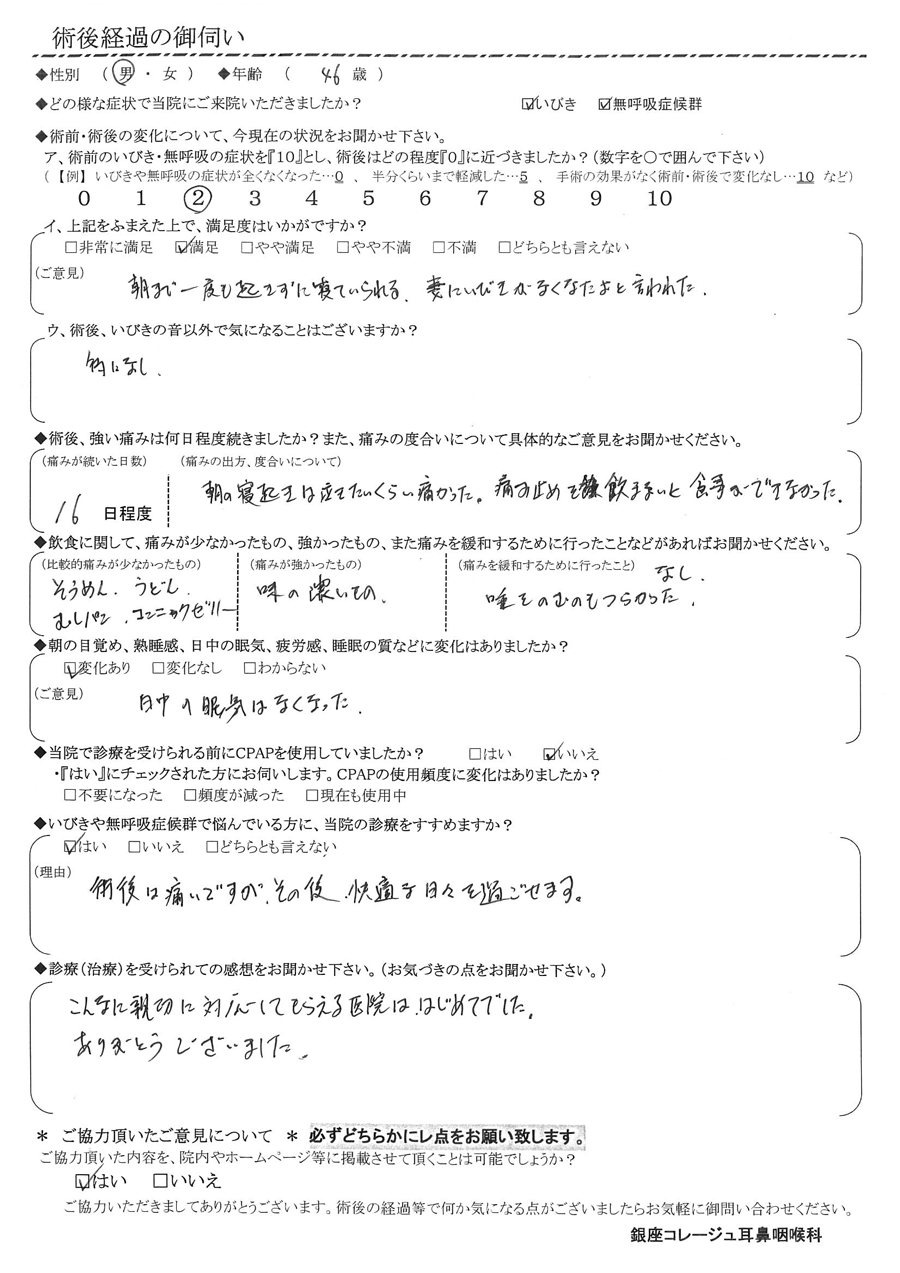 術後経過の御伺い
◆性別 （ 男 ・ 女 ） ◆年齢 （ 46 歳 ）
◆どの様な症状で当院にご来院いただきましたか？ ☑いびき ☑無呼吸症候群
◆術前・術後の変化について、今現在の状況をお聞かせ下さい。
ア、術前のいびき・無呼吸の症状を『10』とし、術後はどの程度『0』に近づきましたか？（数字を〇で囲んで下さい）
（【例】 いびきや無呼吸の症状が全くなくなった…0 、 半分くらいまで軽減した…5 、 手術の効果がなく術前・術後で変化なし…10 など）
0 1 2 3 4 5 6 7 8 9 10
イ、上記をふまえた上で、満足度はいかがですか？
□非常に満足 ☑満足 □やや満足 □やや不満 □不満 □どちらとも言えない
（ご意見）
朝まで一度も起きずに寝ていられる。妻にいびきがなくなたよと言われた。
ウ、術後、いびきの音以外で気になることはございますか？
特になし。
◆術後、強い痛みは何日程度続きましたか？また、痛みの度合いについて具体的なご意見をお聞かせください。
（痛みが続いた日数） （痛みの出方、度合いについて）
朝の寝起きは泣きたいくらい痛かった。痛み止めを飲まないと食事ができなかった。
16 日程度
◆飲食に関して、痛みが少なかったもの、強かったもの、また痛みを緩和するために行ったことなどがあればお聞かせください。
（比較的痛みが少なかったもの） （痛みが強かったもの） （痛みを緩和するために行ったこと） なし。
そうめん、うどん 味の濃いもの、 唾をのむのもつらかった。
むしパン、コンニャクゼリー
◆朝の目覚め、熟睡感、日中の眠気、疲労感、睡眠の質などに変化はありましたか？
☑変化あり □変化なし □わからない
（ご意見）
日中の眠気はなくなった。
◆当院で診療を受けられる前にCPAPを使用していましたか？ □はい ☑いいえ
・『はい』にチェックされた方にお伺いします。CPAPの使用頻度に変化はありましたか？
□不要になった □頻度が減った □現在も使用中
◆いびきや無呼吸症候群で悩んでいる方に、当院の診療をすすめますか？
☑はい □いいえ □どちらとも言えない
（理由）
術後は痛いですが、その後、快適な日々を過ごせます。
◆診療（治療）を受けられての感想をお聞かせ下さい。（お気づきの点をお聞かせ下さい。）
こんなに親切に対応してもらえる医院は、はじめてでした。
ありがとうございました。
＊ ご協力頂いたご意見について ＊ 必ずどちらかにレ点をお願い致します。
ご協力頂いた内容を、院内やホームページ等に掲載させて頂くことは可能でしょうか？
☑はい □いいえ
ご協力いただきましてありがとうございます。術後の経過等で何か気になる点がございましたらお気軽に御問い合わせください。
銀座コレージュ耳鼻咽喉科